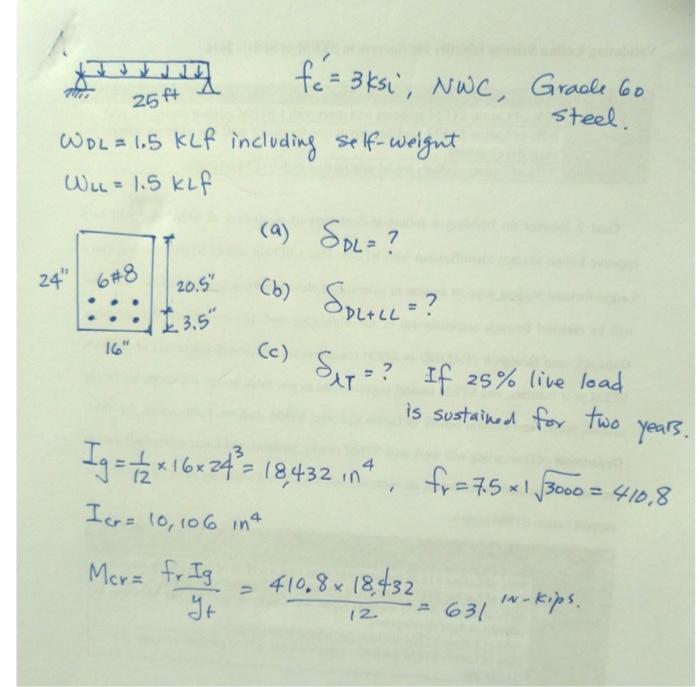 1.
25 ft
fc' = 3 ksi, NWC, Grade 60 steel.
WDL = 1.5 KLf including self-weight
WLL = 1.5 KLf
24" 6#8 20.5" 3.5"
16"
(a) δDL = ?
(b) δDL+LL = ?
(c) δλT = ? If 25% live load
is sustained for two years.
Ig = 1/12 × 16 × 24³ = 18,432 in⁴, fr = 7.5 × 1 √3000 = 410.8
Icr = 10,106 in⁴
Mcr = fr Ig / yt = 410.8 × 18,432 / 12 = 631 in-kips.